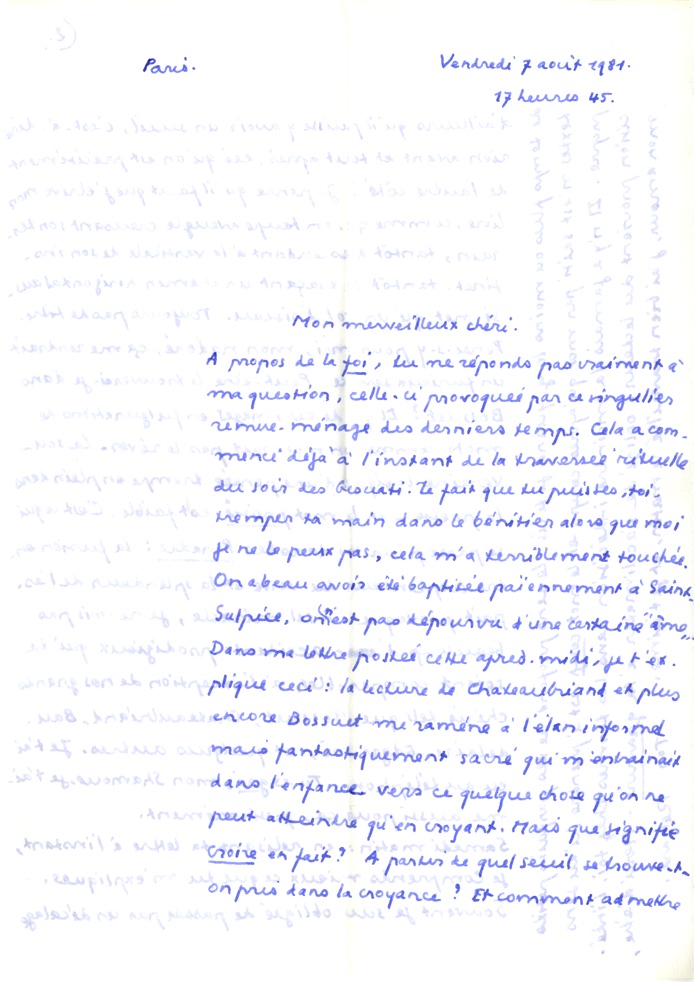 Paris.
Vendredi 7 août 1981.
17 heures 45.
Mon merveilleux chéri.
A propos de la foi, tu ne réponds pas vraiment à
ma question, celle-ci provoquée par ce singulier
remue-ménage des derniers temps. Cela a com-
mencé déjà à l'instant de la traversée rituelle
du soir des Gesuati. Le fait que tu puisses, toi,
tremper ta main dans le bénitier alors que moi
je ne le peux pas, cela m'a terriblement touchée.
On a beau avoir été baptisée païennement à Saint.
Sulpice, on n'est pas dépourvu d'une certaine âme...
Dans ma lettre postée cette après-midi, je t'ex-
plique ceci : la lecture de Chateaubriand et plus
encore Bossuet me ramène à l'élan informel
mais fantastiquement sacré qui m'entraînait
dans l'enfance vers ce quelque chose qu'on ne
peut atteindre qu'en croyant. Mais que signifie
croire en fait ? A partir de quel seuil se trouve-t-
on pris dans la croyance ? Et comment admettre